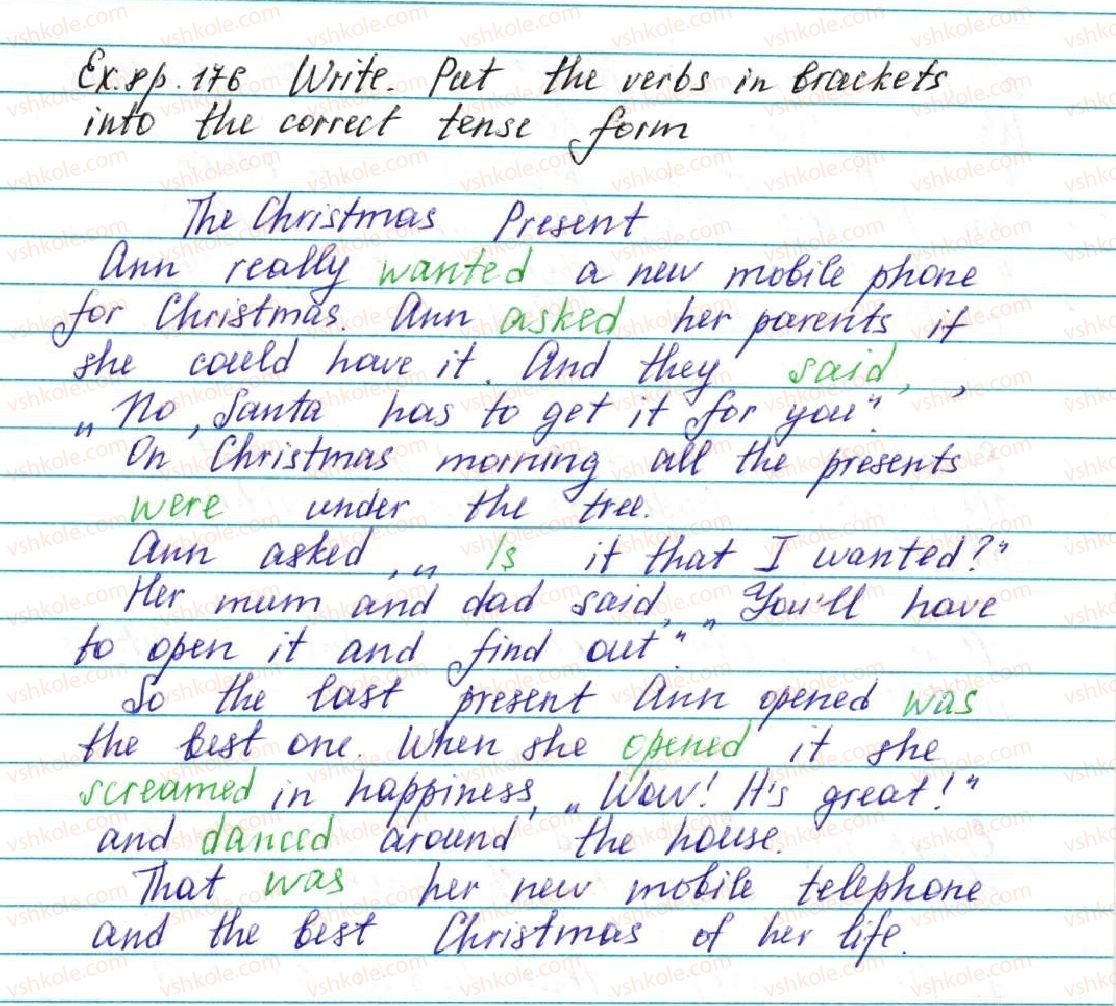 Ex. 8 p. 176 Write. Put the verbs in brackets
into the correct tense form
The Christmas Present
Ann really wanted a new mobile phone
for Christmas. Ann asked her parents if
she could have it. And they said, ,
„No, Santa has to get it for you".
On Christmas morning all the presents
were under the tree.
Ann asked, „ Is it that I wanted?"
Her mum and dad said, „You'll have
to open it and find out".
So the last present Ann opened was
the best one. When she opened it she
screamed in happiness, „Wow! It's great!"
and danced around the house.
That was her new mobile telephone
and the best Christmas of her life.